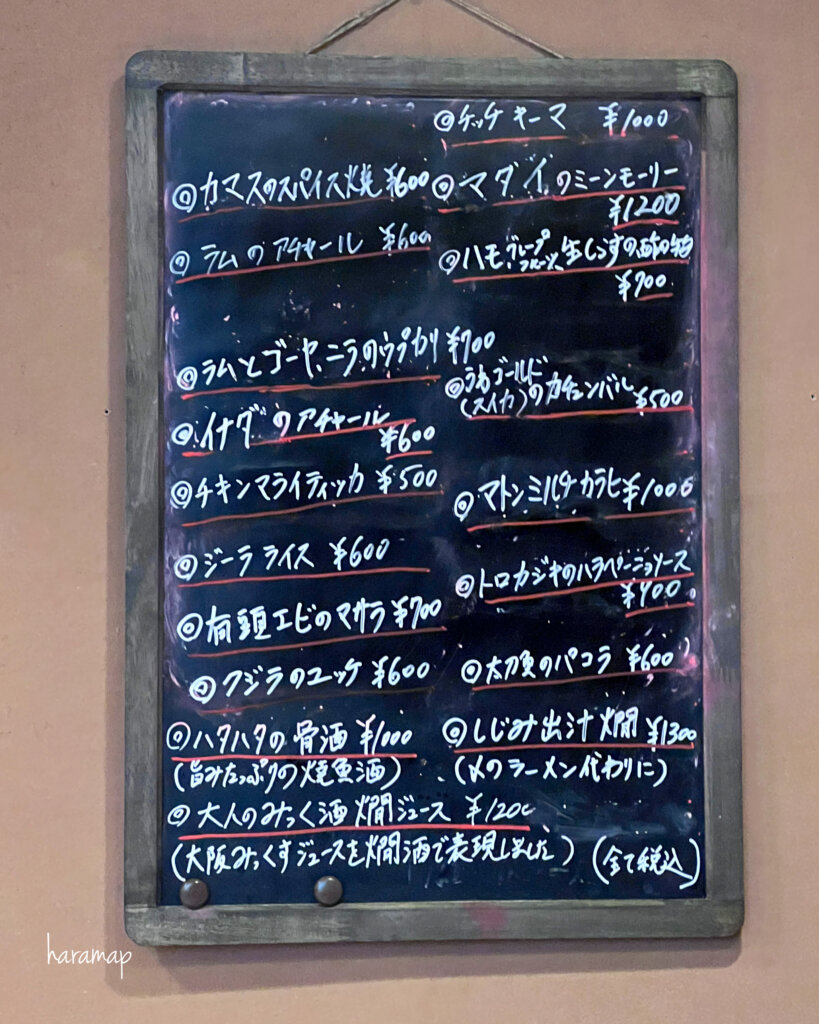 ◎ケッチキーマ ¥1000
◎カマスのスパイス焼 ¥600
◎マダイのミーンモーリー
¥1200
◎ラムのアチャール ¥600
◎ハモ、グレープフルーツ、生しらすの酢の物
¥700
◎ラムとゴーヤ、ニラのウプカリ ¥700
◎うわゴールド
(スイカ)のカチュンバル ¥500
◎イナダのアチャール
¥600
◎チキンマライティッカ ¥500
◎マトンミルチカラヒ ¥1000
◎ジーラライス ¥600
◎トロカジキのハラペーニョソース
¥900
◎有頭エビのマサラ ¥700
◎クジラのユッケ ¥600
◎太刀魚のパコラ ¥600
◎ハタハタの骨酒 ¥1000
(旨みたっぷりの焼魚酒)
◎しじみ出汁燗 ¥1300
(〆のラーメン代わりに)
◎大人のみっく酒燗ジュース ¥1200
(大阪みっくすジュースを燗酒で表現しました)
(全て税込)
haramap